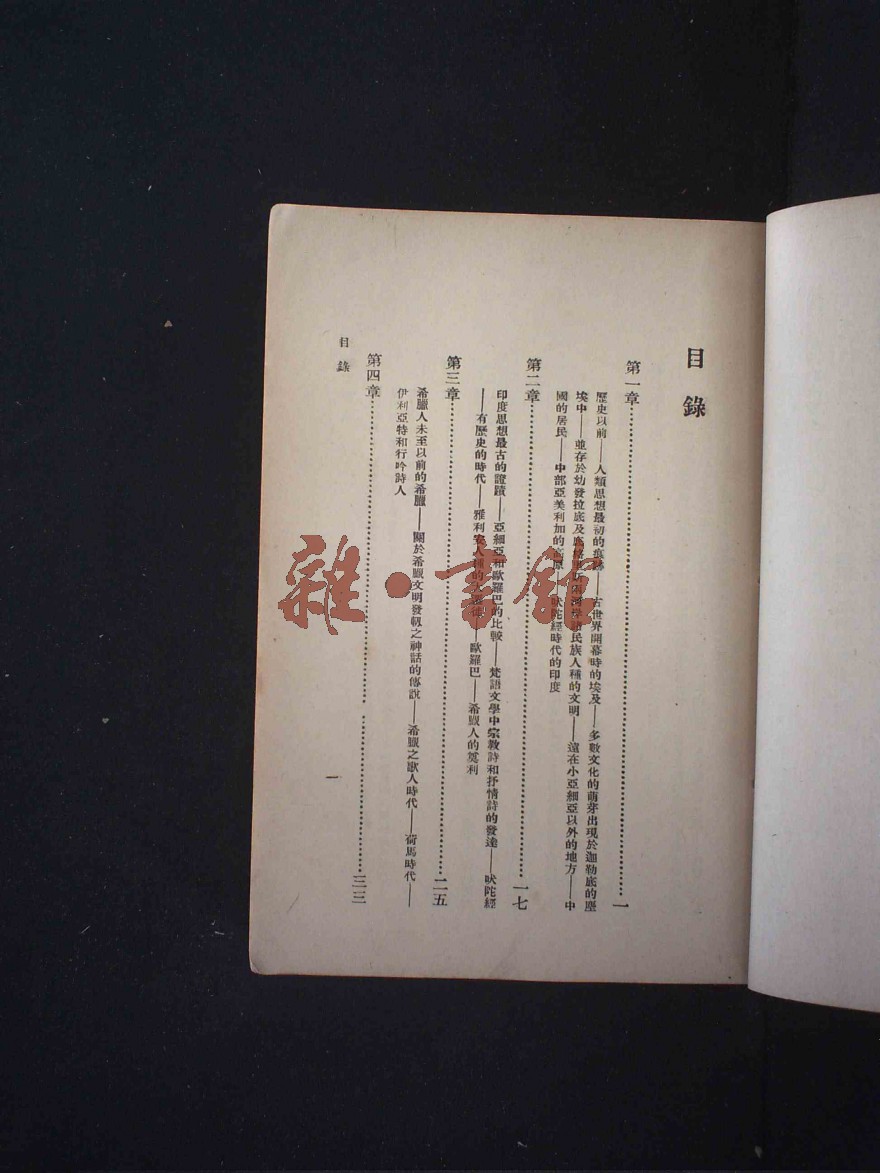 目錄
第一章……………………一
歷史以前——人類思想最初的痕跡——古世界開幕時的埃及——多數文化的萌芽出現於迦勒底的塵
埃中——並存於幼發拉底及底格里斯兩河岸諸民族人種的文明——遠在小亞細亞以外的地方——中
國的居民——中部亞美利加的高原——吠陀經時代的印度
第二章……………………一七
印度思想最古的證蹟——亞細亞和歐羅巴的比較——梵語文學中宗教詩和抒情詩的發達——吠陀經
——有歷史的時代——雅利安人種的大——歐羅巴——希臘人的奠利
第三章……………………二五
希臘人未至以前的希臘——關於希臘文明發軔之神話的傳說——希臘之歌人時代——荷馬時代——
伊利亞特和行吟詩人
第四章……………………三三
目錄
一
雜·書館